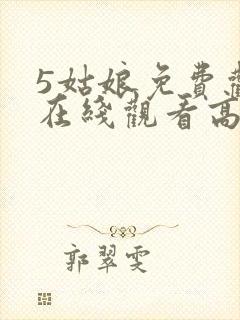 5姑娘免費觀
在綫觀看高
郭翠雯